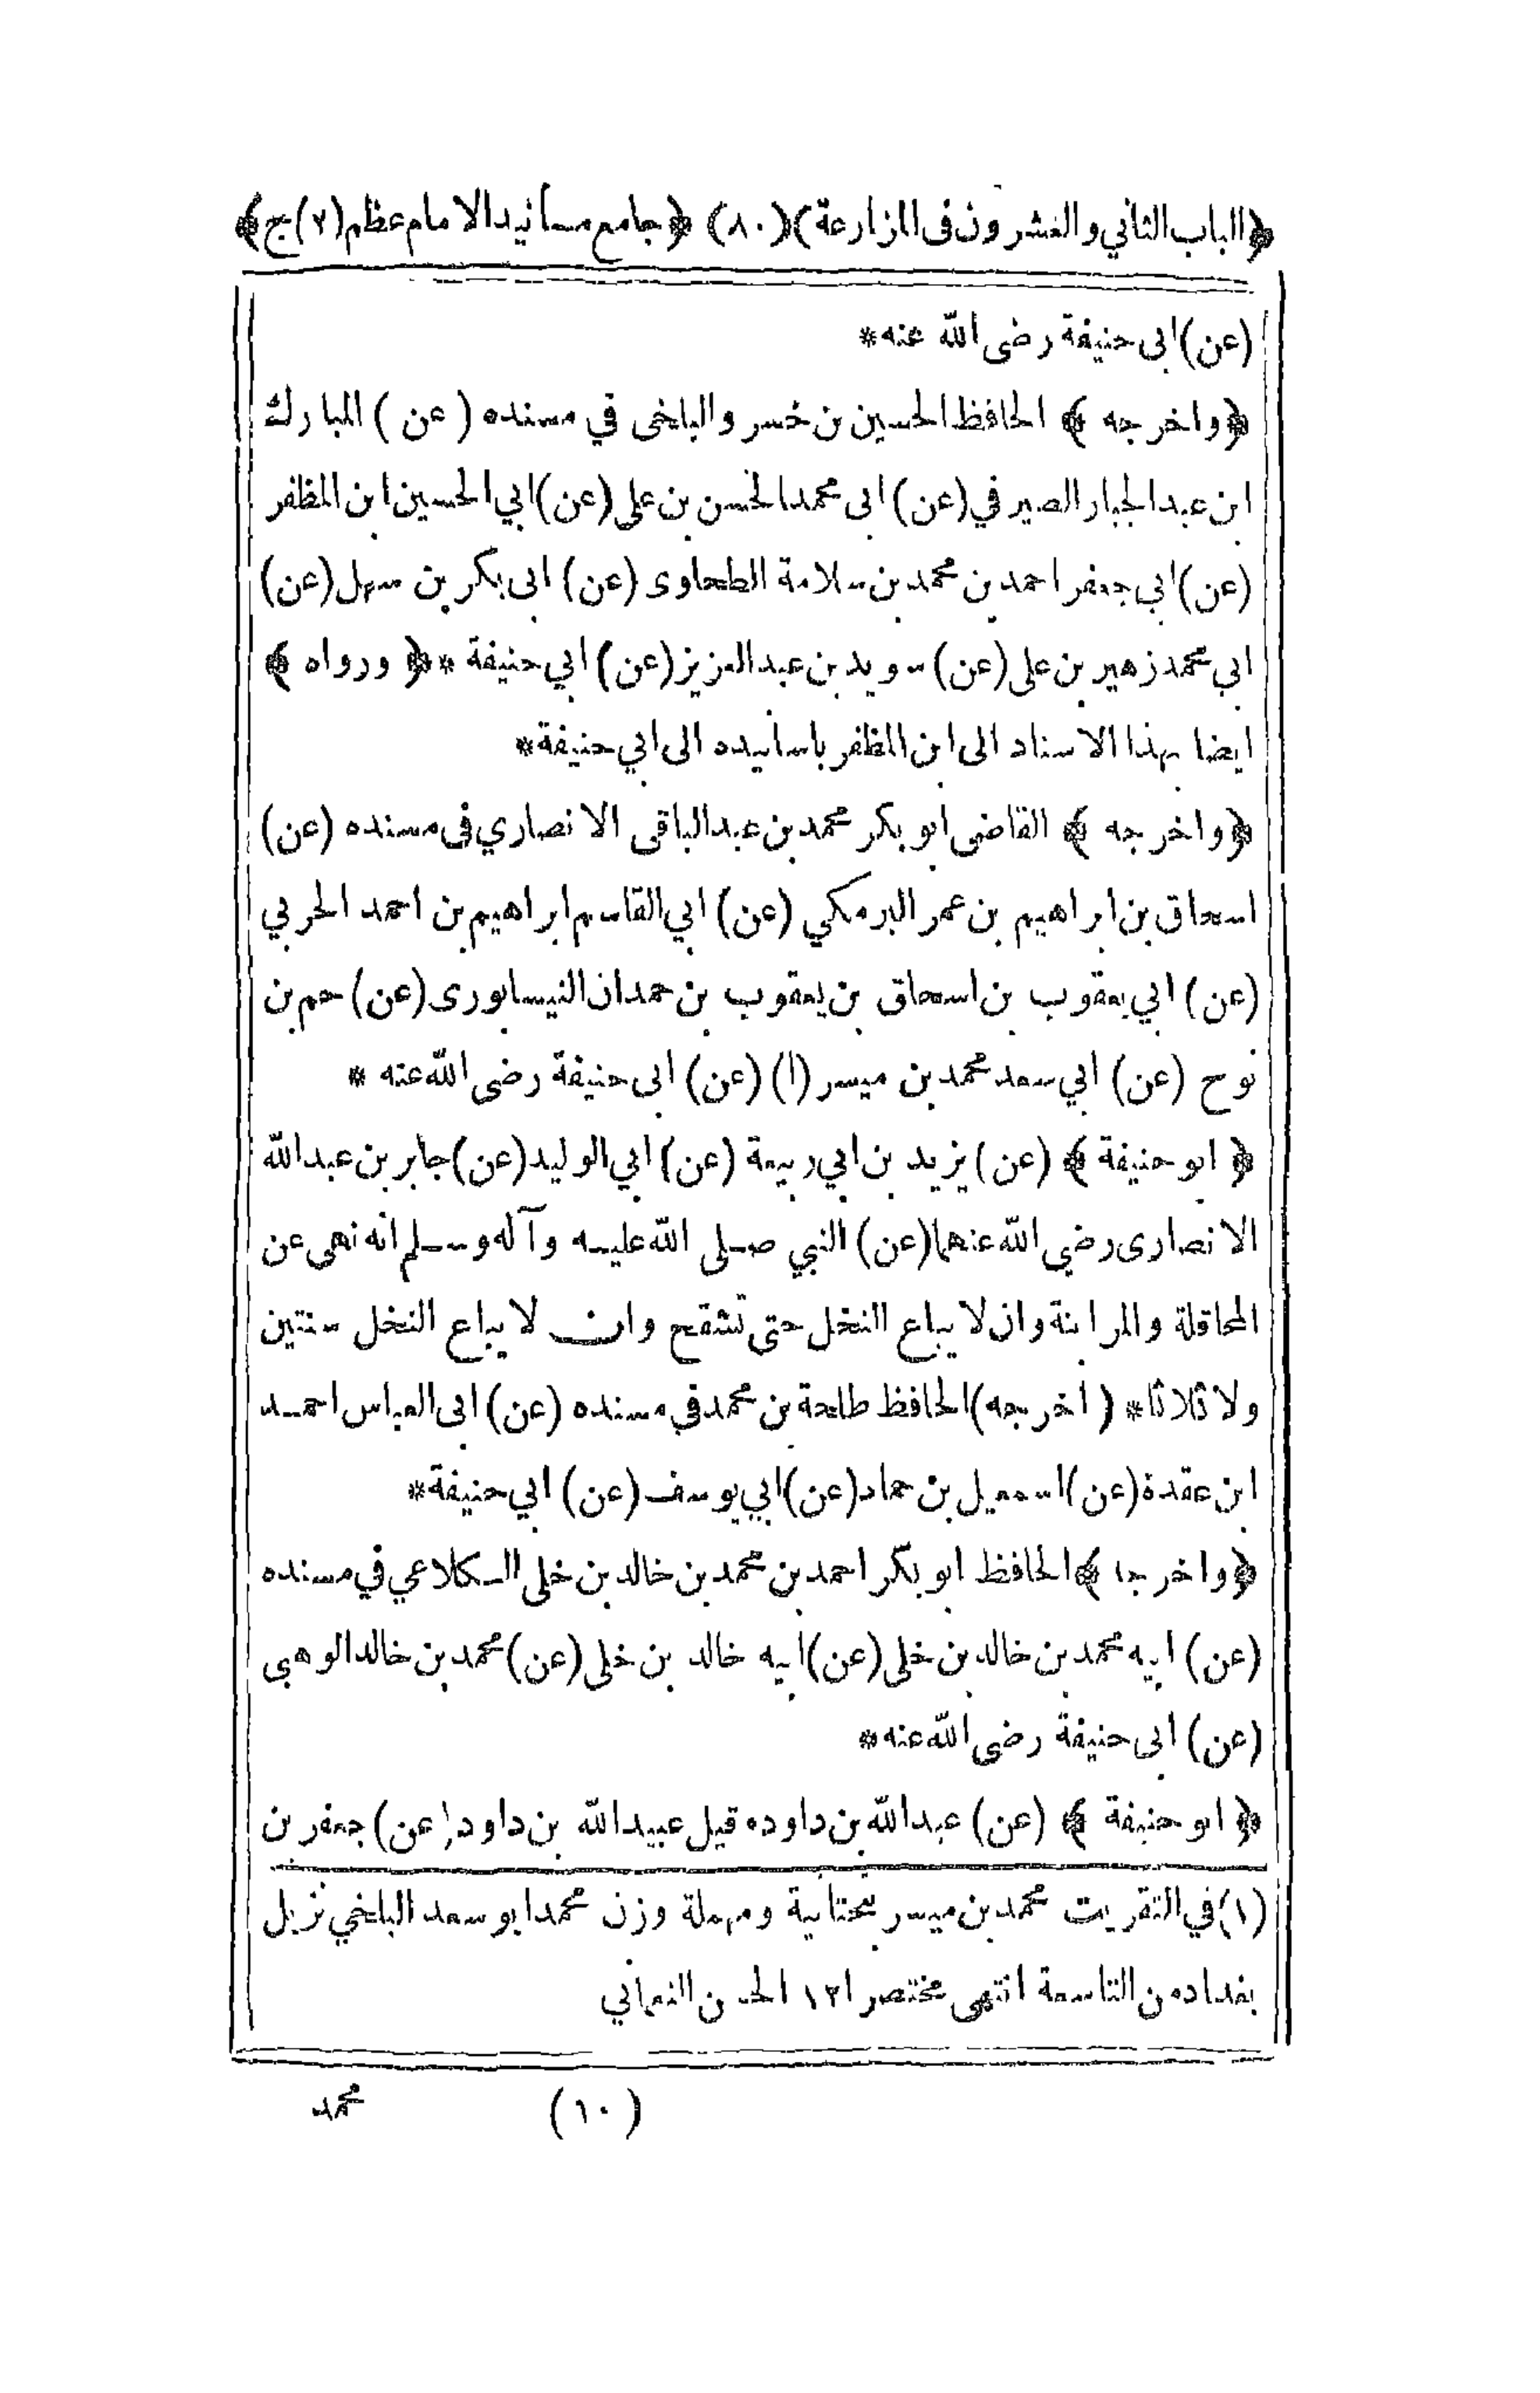 ﴿الباب الثاني والعشرون فى المزارعة﴾(٨٠) ﴿جامع مسانيد الامام عظم(٢)ج﴾
(عن)ابى حنيفة رضى الله عنه*
﴿واخرجه﴾ الحافظ الحسين بن خسر والبلخى في مسنده (عن) المبارك
ابن عبد الجبار الصيرفي(عن)ابى محمد الحسن بن على(عن)ابي الحسين ابن المظفر
(عن)ابي جعفر احمد بن محمد بن سلامة الطحاوى(عن)ابى بكر بن سهل(عن)
ابي محمد زهير بن على(عن)سويد بن عبد العزيز(عن)ابي حنيفة*﴿ورواه﴾
ايضا بهذا الاسناد الى ابن المظفر باسانيده الى ابي حنيفة*
﴿واخرجه﴾ القاضى ابو بكر محمد بن عبد الباقى الانصاري فى مسنده (عن)
اسحاق بن ابراهيم بن عمر البرمكي(عن)ابي القاسم ابراهيم بن احمد الحربي
(عن)ابي يعقوب بن اسحاق بن يعقوب بن حمدان النيسابورى(عن)حم بن
نوح (عن) ابي سعد محمد بن ميسر(١)(عن)ابى حنيفة رضى الله عنه *
﴿ابو حنيفة﴾ (عن)يزيد بن ابي ربيعة (عن)ابي الوليد(عن)جابر بن عبد الله
الانصارى رضي الله عنهما(عن)النبي صلى الله عليه وآله وسلم انه نهى عن
المحاقلة والمزابنة وان لا يباع النخل حتى تشقح وان لا يباع النخل سنتين
ولا ثلاثا* (اخرجه)الحافظ طلحة بن محمد في مسنده (عن)ابى العباس احمد
ابن عقدة(عن)اسمعيل بن حماد(عن)ابي يوسف(عن)ابي حنيفة*
﴿واخرجا﴾الحافظ ابو بكر احمد بن محمد بن خالد بن خلى الكلاعي في مسنده
(عن)ابيه محمد بن خالد بن خلى(عن)ابيه خالد بن خلى(عن)محمد بن خالد الوهبى
(عن)ابى حنيفة رضى الله عنه*
﴿ابو حنيفة﴾ (عن)عبد الله بن داوده قيل عبيد الله بن داود(عن)جعفر بن
(١)في التقريب محمد بن ميسر بتحتانية ومهملة وزن محمد ابو سعد البلخي نزيل
بغداد من التاسعة انتهى مختصرا ١٢ الحسن النعماني
(١٠) محمد